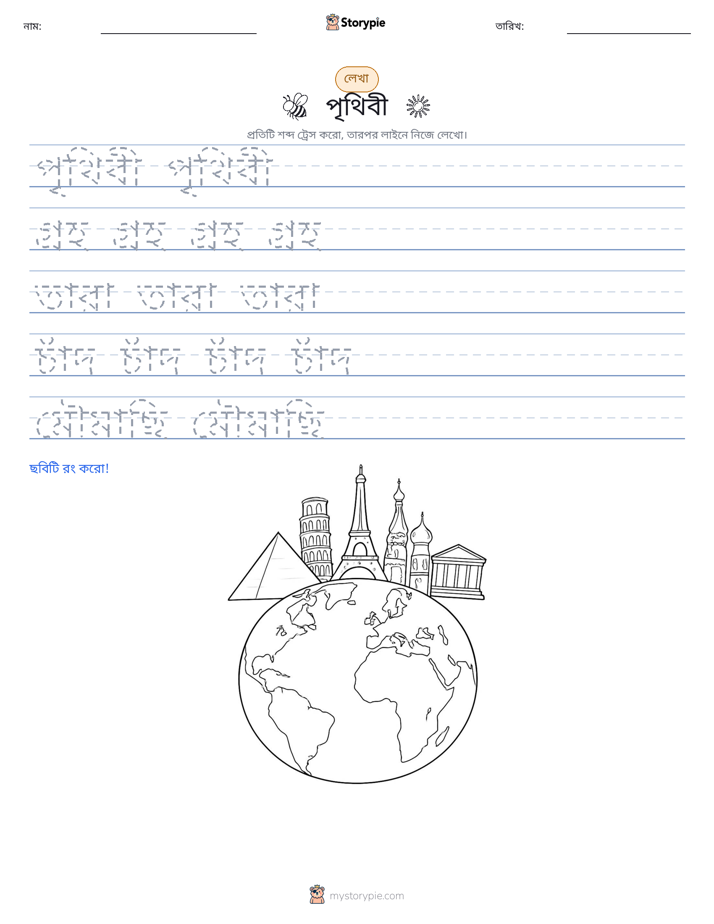 নাম:
Storypie
তারিখ:
লেখা
পৃথিবী
প্রতিটি শব্দ ট্রেস করো, তারপর লাইনে নিজে লেখো।
পৃথিবী পৃথিবী
গ্রহ গ্রহ গ্রহ গ্রহ
তারা তারা তারা
চাঁদ চাঁদ চাঁদ চাঁদ
মৌমাছি মৌমাছি
ছবিটি রং করো!
mystorypie.com